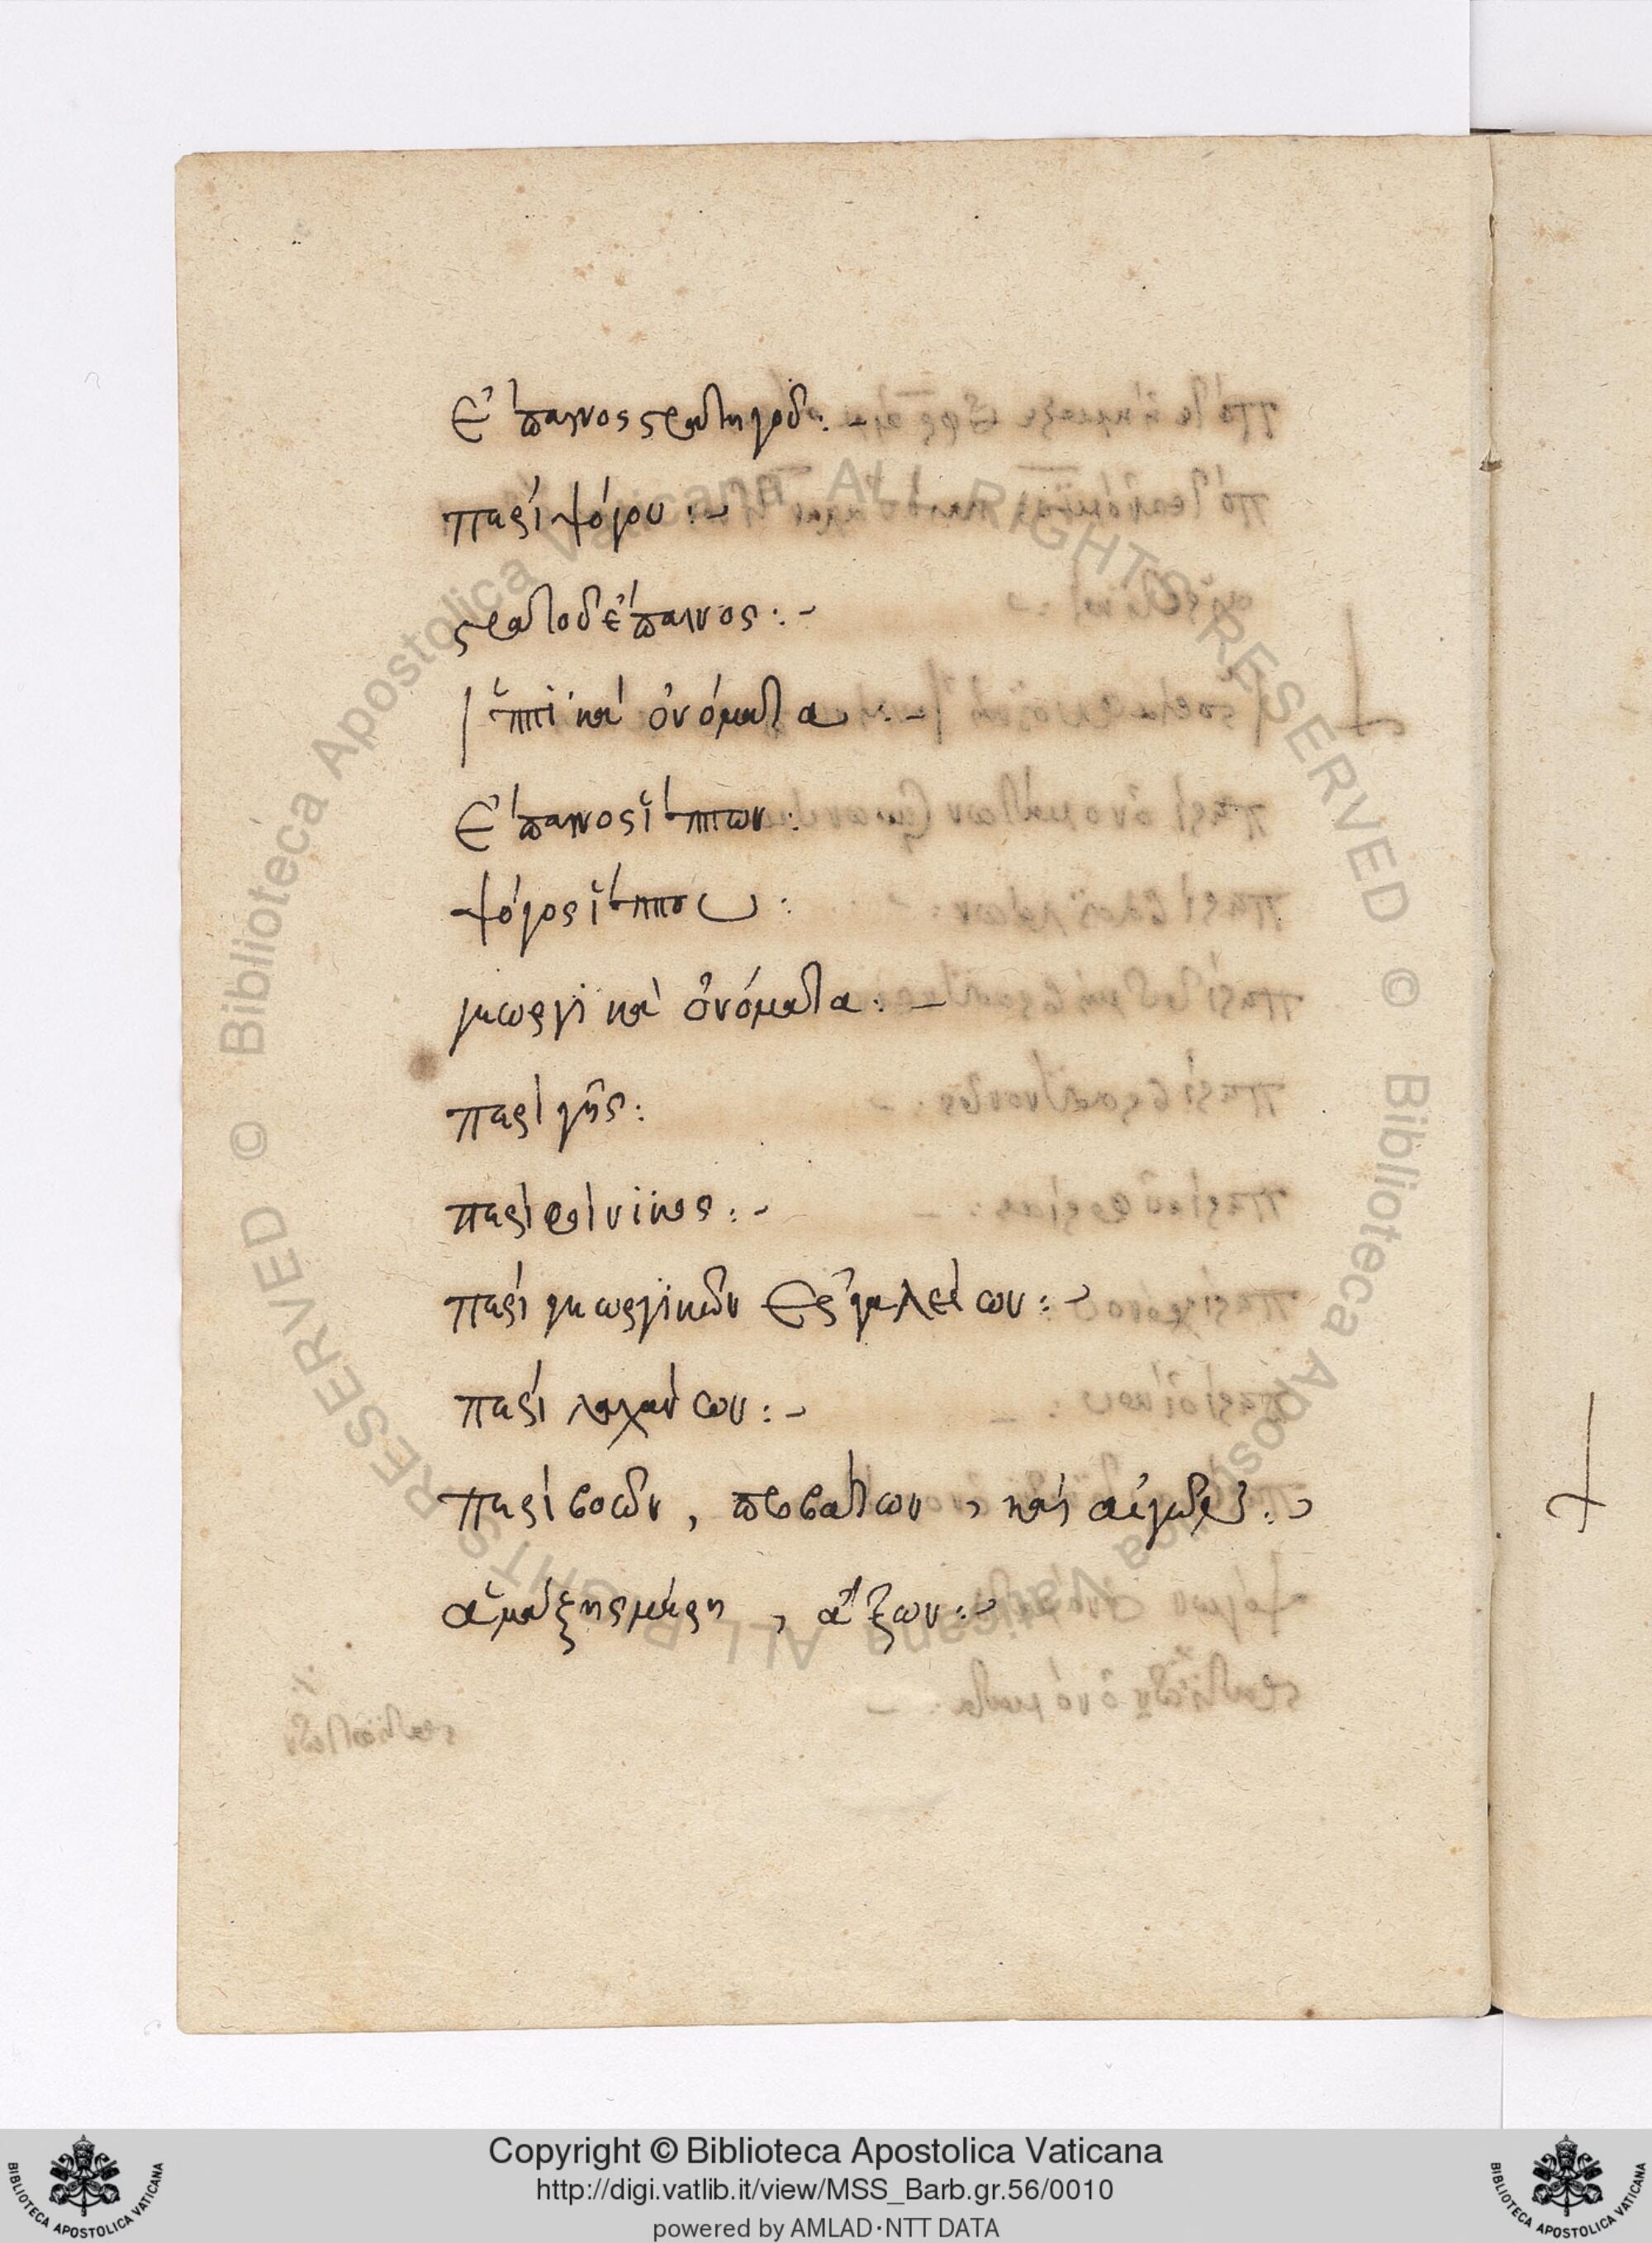 Ἔπαινος στρατηγοῦ :~
περὶ ψόγου :~
στρατοῦ ἔπαινος :~
ἱππικὰ ὀνόματα :~
Ἔπαινος ἵππων :
ψόγος ἵππου :
γεωργικὰ ὀνόματα :~
περὶ γῆς :
περὶ φοίνικος :~
περὶ γεωργικῶν ἐργαλείων :~
περὶ λαχάνων :~
περὶ βοῶν, προβάτων, καὶ αἰγῶν :~
ἁμάξης μέρη, ἄξων :~
© Biblioteca Apostolica Vaticana ALL RIGHTS RESERVED © Biblioteca Apostolica Vaticana ALL RIGHTS RESERVED
Copyright © Biblioteca Apostolica Vaticana
http://digi.vatlib.it/view/MSS_Barb.gr.56/0010
powered by AMLAD·NTT DATA
BIBLIOTECA APOSTOLICA VATICANA
BIBLIOTECA APOSTOLICA VATICANA